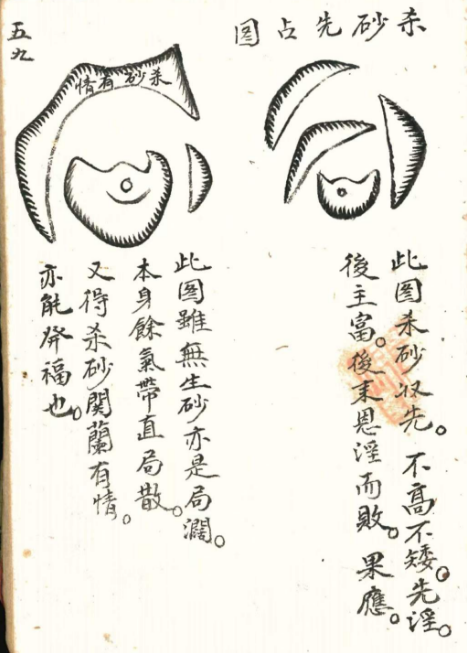 杀砂先占图
此图杀砂収先。不高不矮。先淫。
後主富。後来恩淫而敗。果應。
五九
杀砂有情
此图雖無生砂亦是局濶。
本身餘氣帶直局散。
又得杀砂関蘭有情。
亦能發福也。